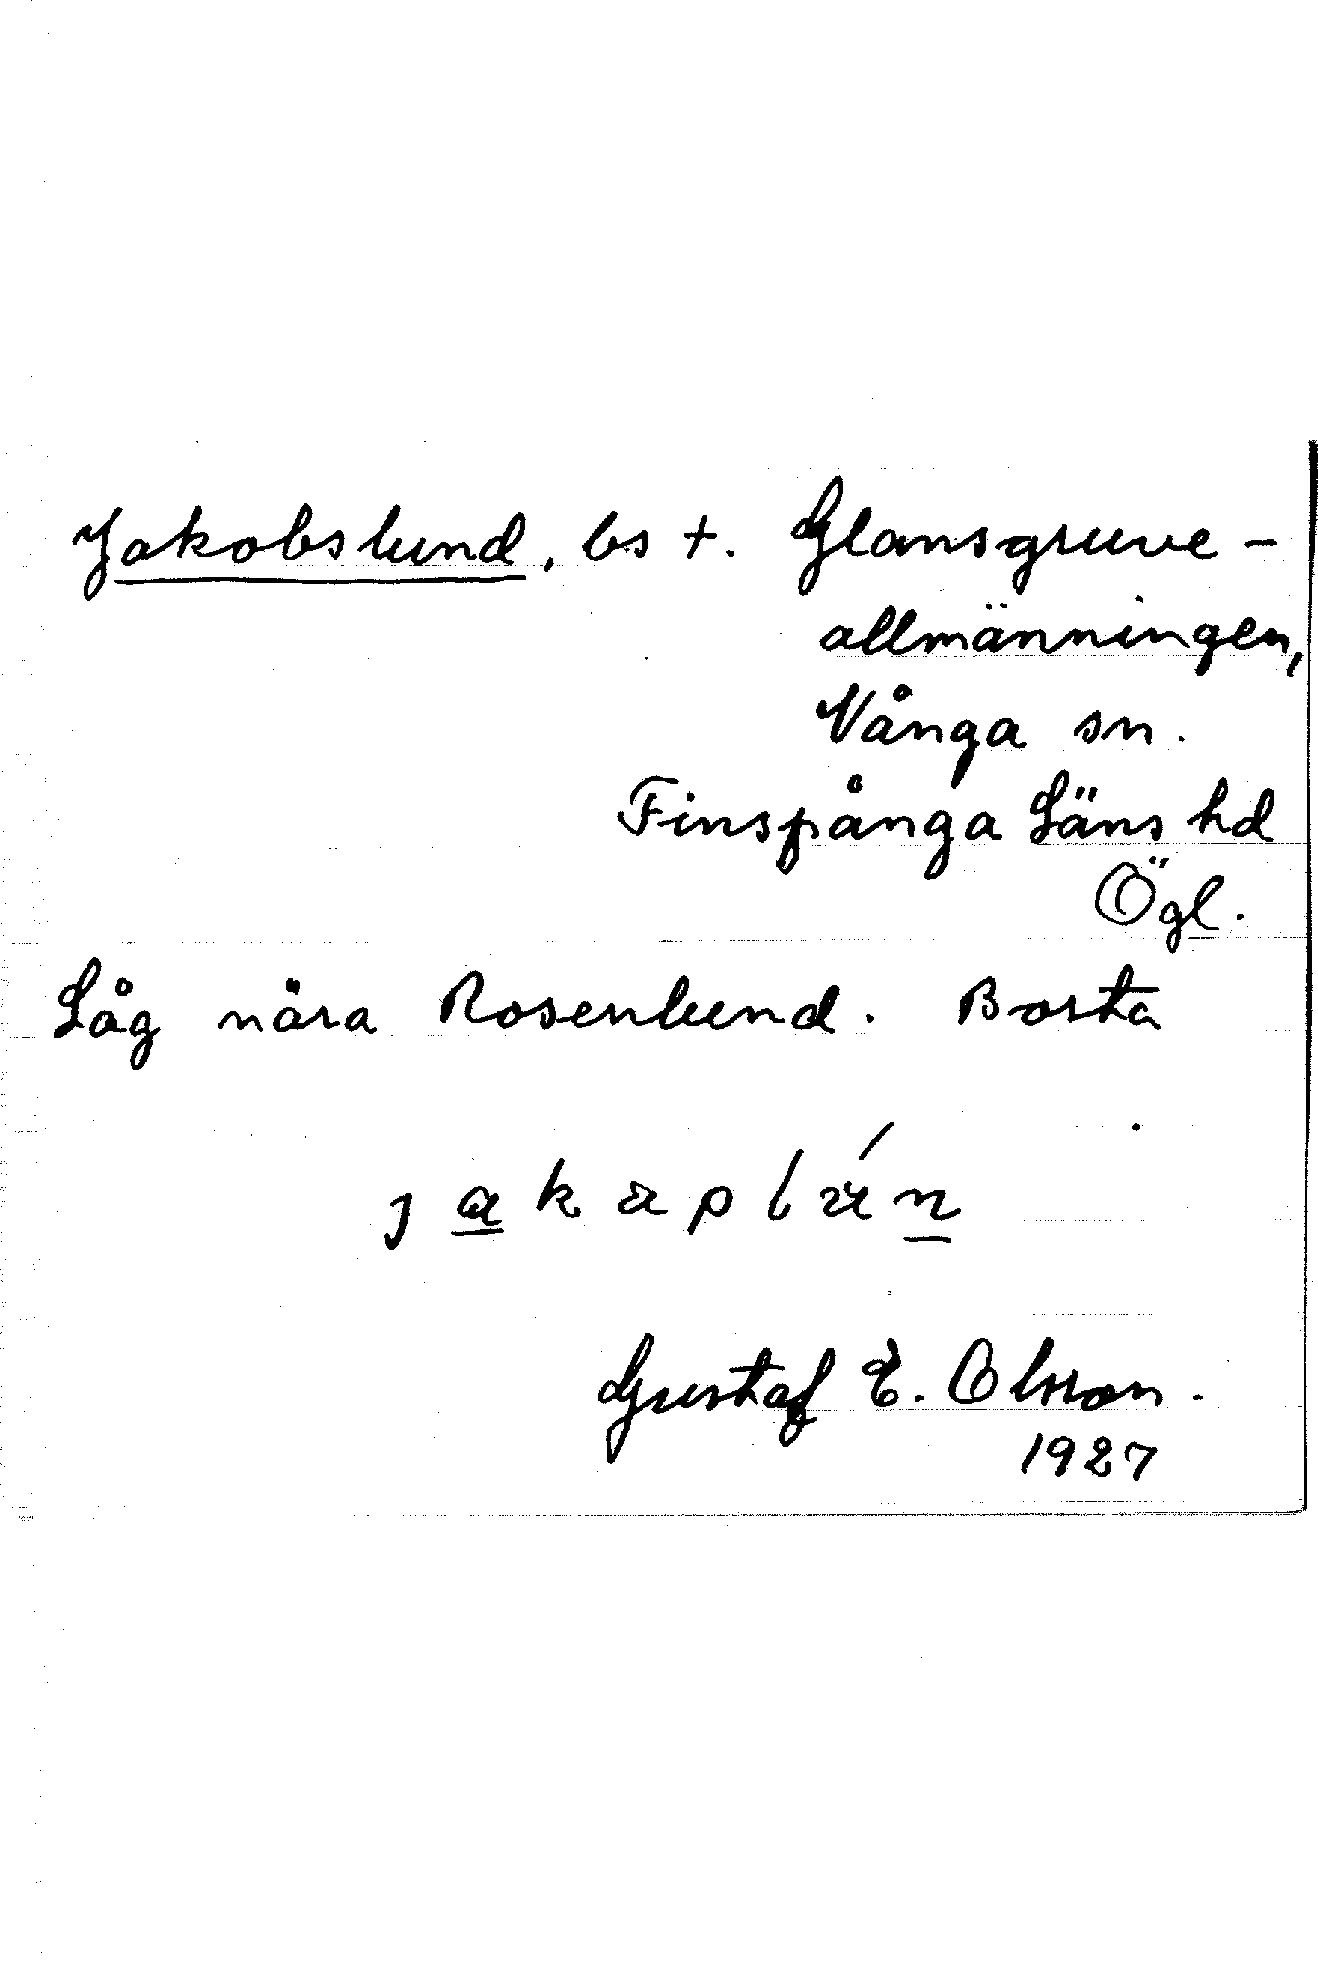 Jakobslund, bs †. Glansgruve-
allmänningen,
Vånga sn.
Finspånga Läns hd
Ögl.
Låg nära Rosenlund. Borta
Gustaf E. Olsson.
1927